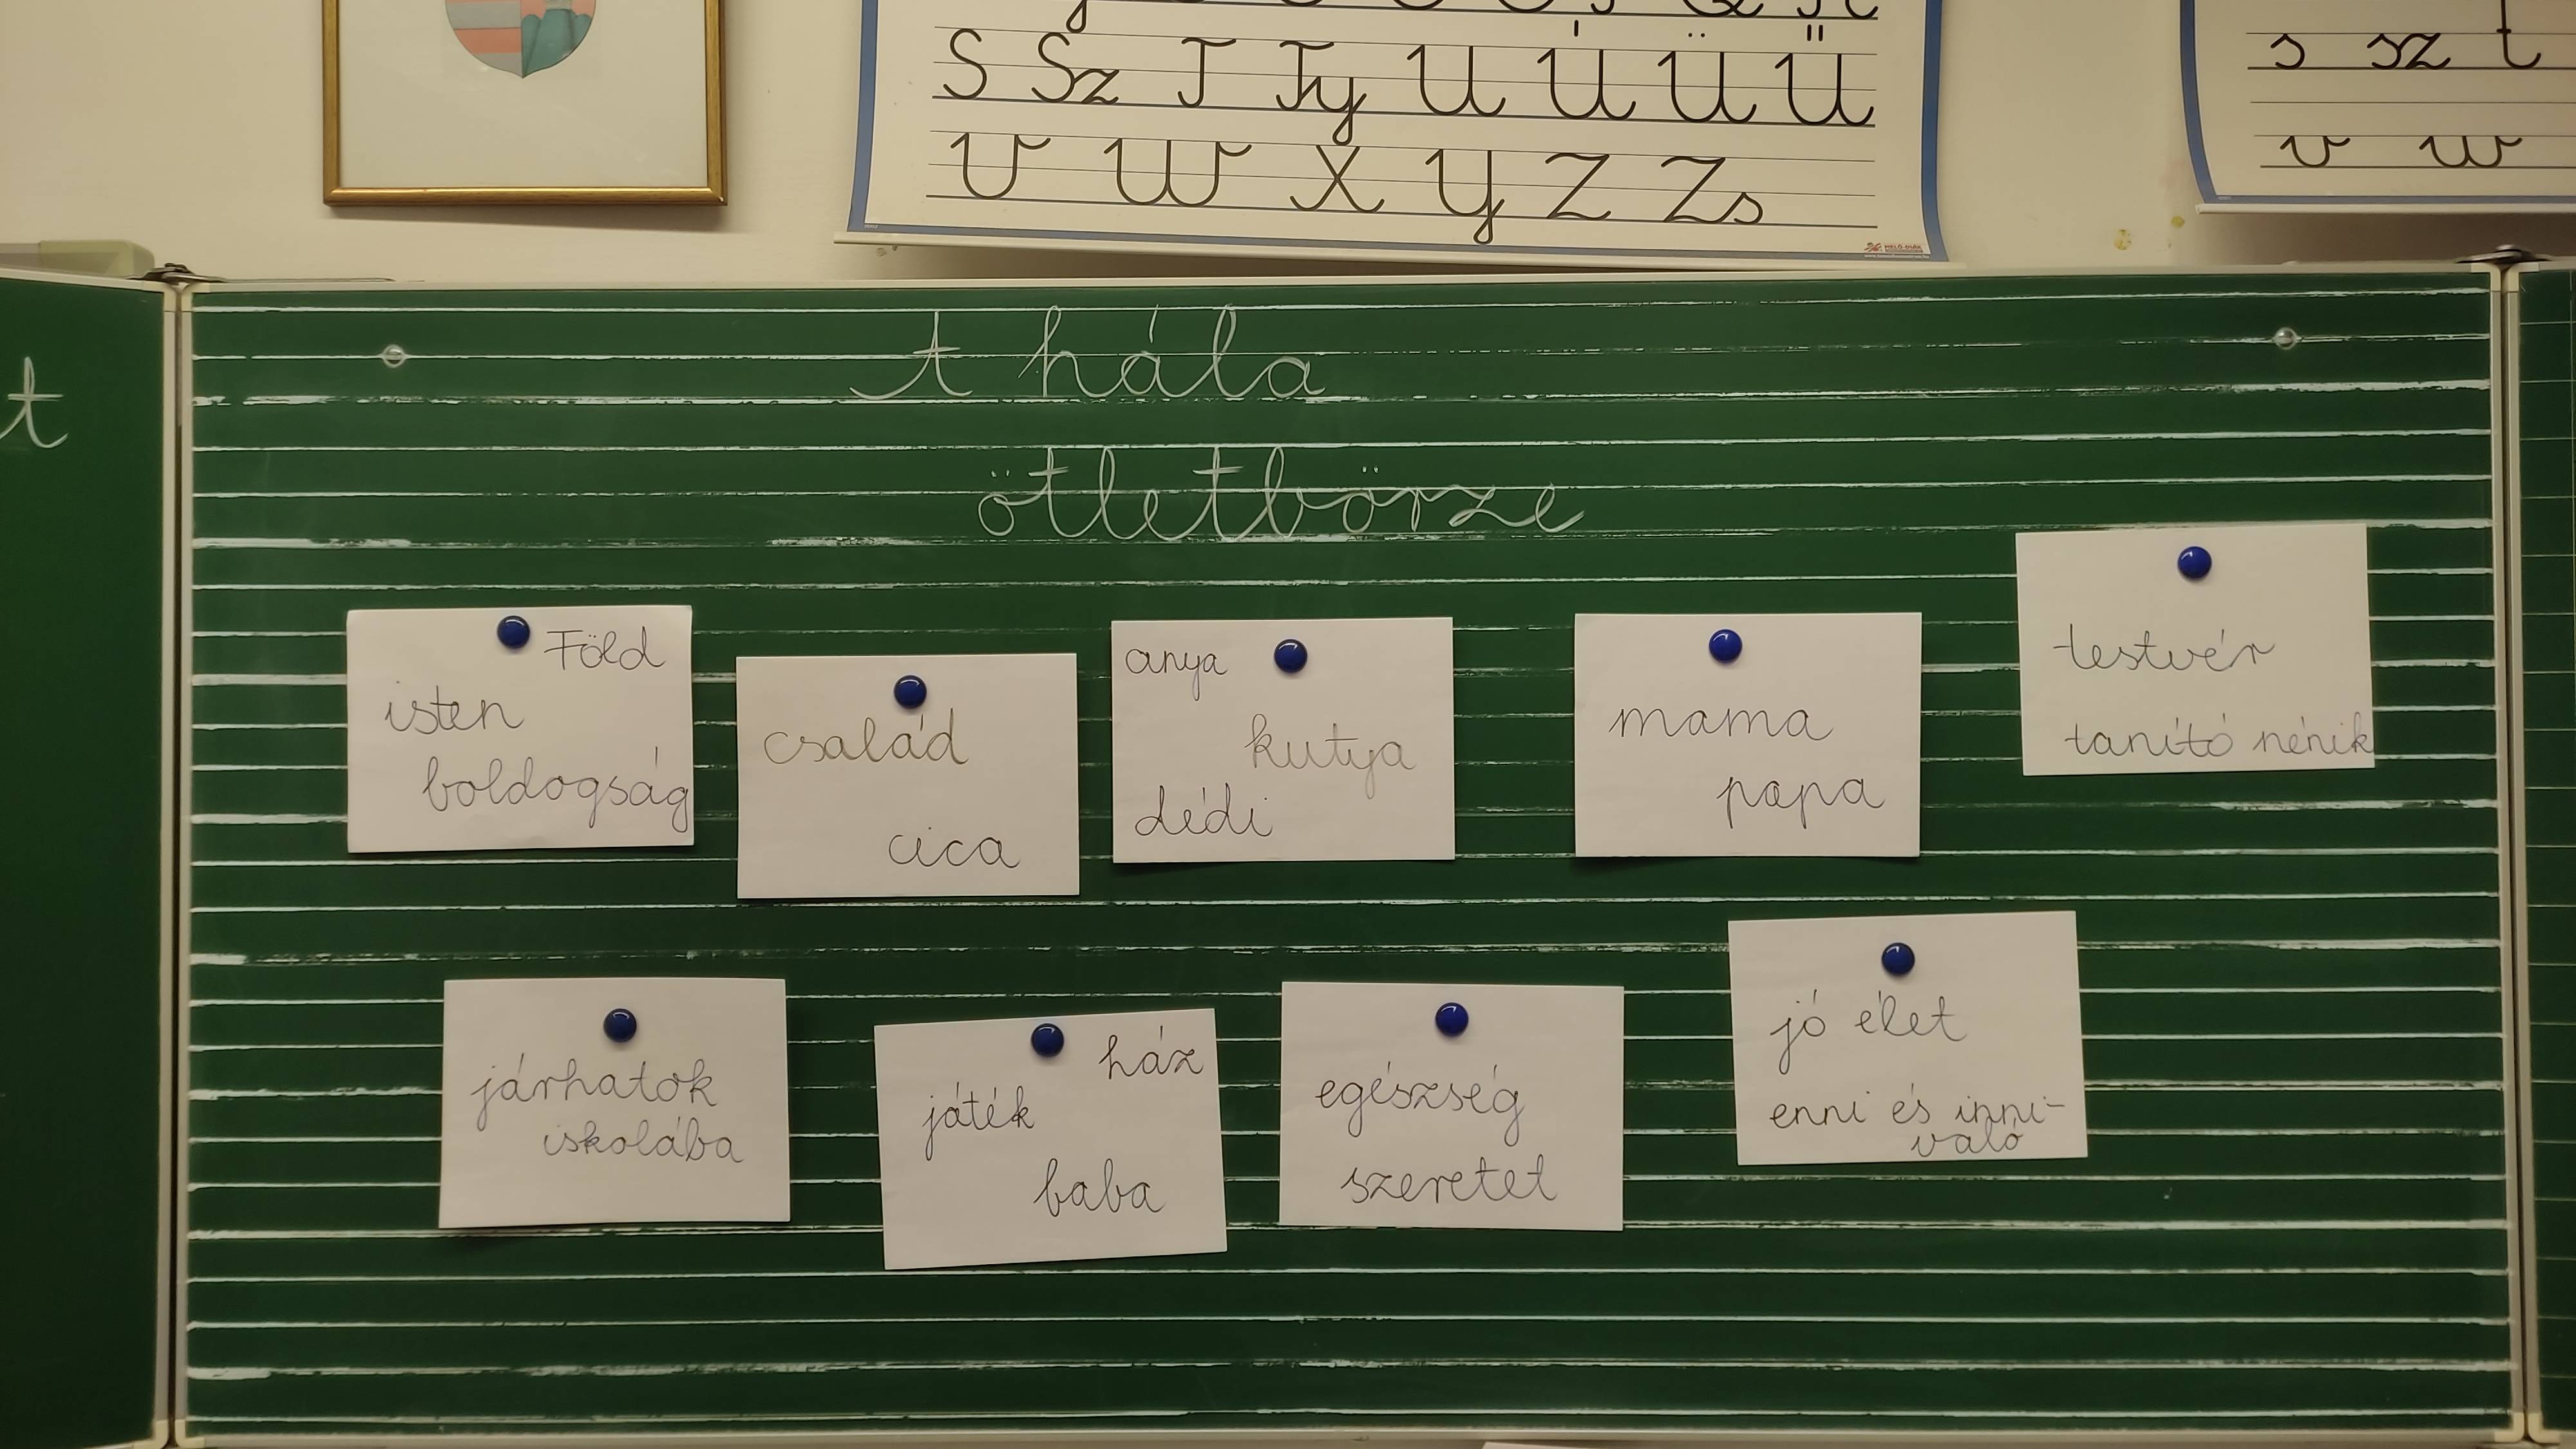 S Sz T Ty U Ú Ü Ű
V W X Y Z Zs
s sz t
v w
t
t hála
ötletbörze
Föld
isten
boldogság
család
cica
anya
kutya
dédi
mama
papa
testvér
tanító nénik
járhatok
iskolába
ház
játék
baba
egészség
szeretet
jó élet
enni és inni-
való